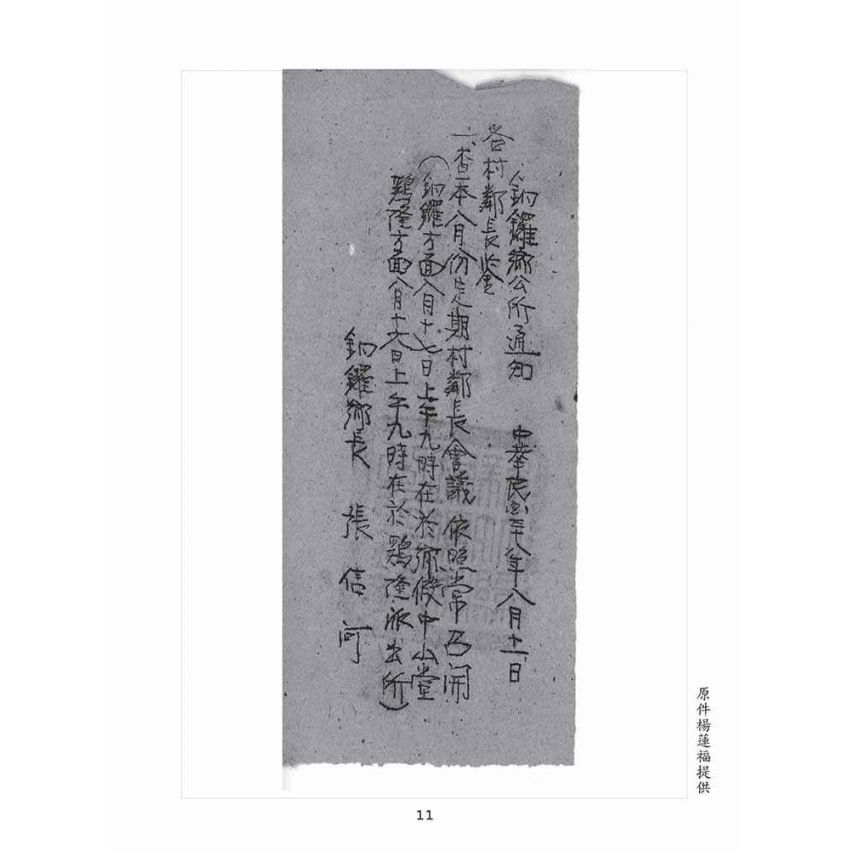 銅鑼鄉公所通知 中華民國三十八年八月十二日
各村鄰長
一、查本八月份定期村鄰長會議依照常召開
(銅鑼方面八月十七日上午九時在於鄉假中山堂
鷄隆方面八月十六日上午九時在於鷄隆派出所)
銅鑼鄉長 張信河
原件楊蓮福提供
11